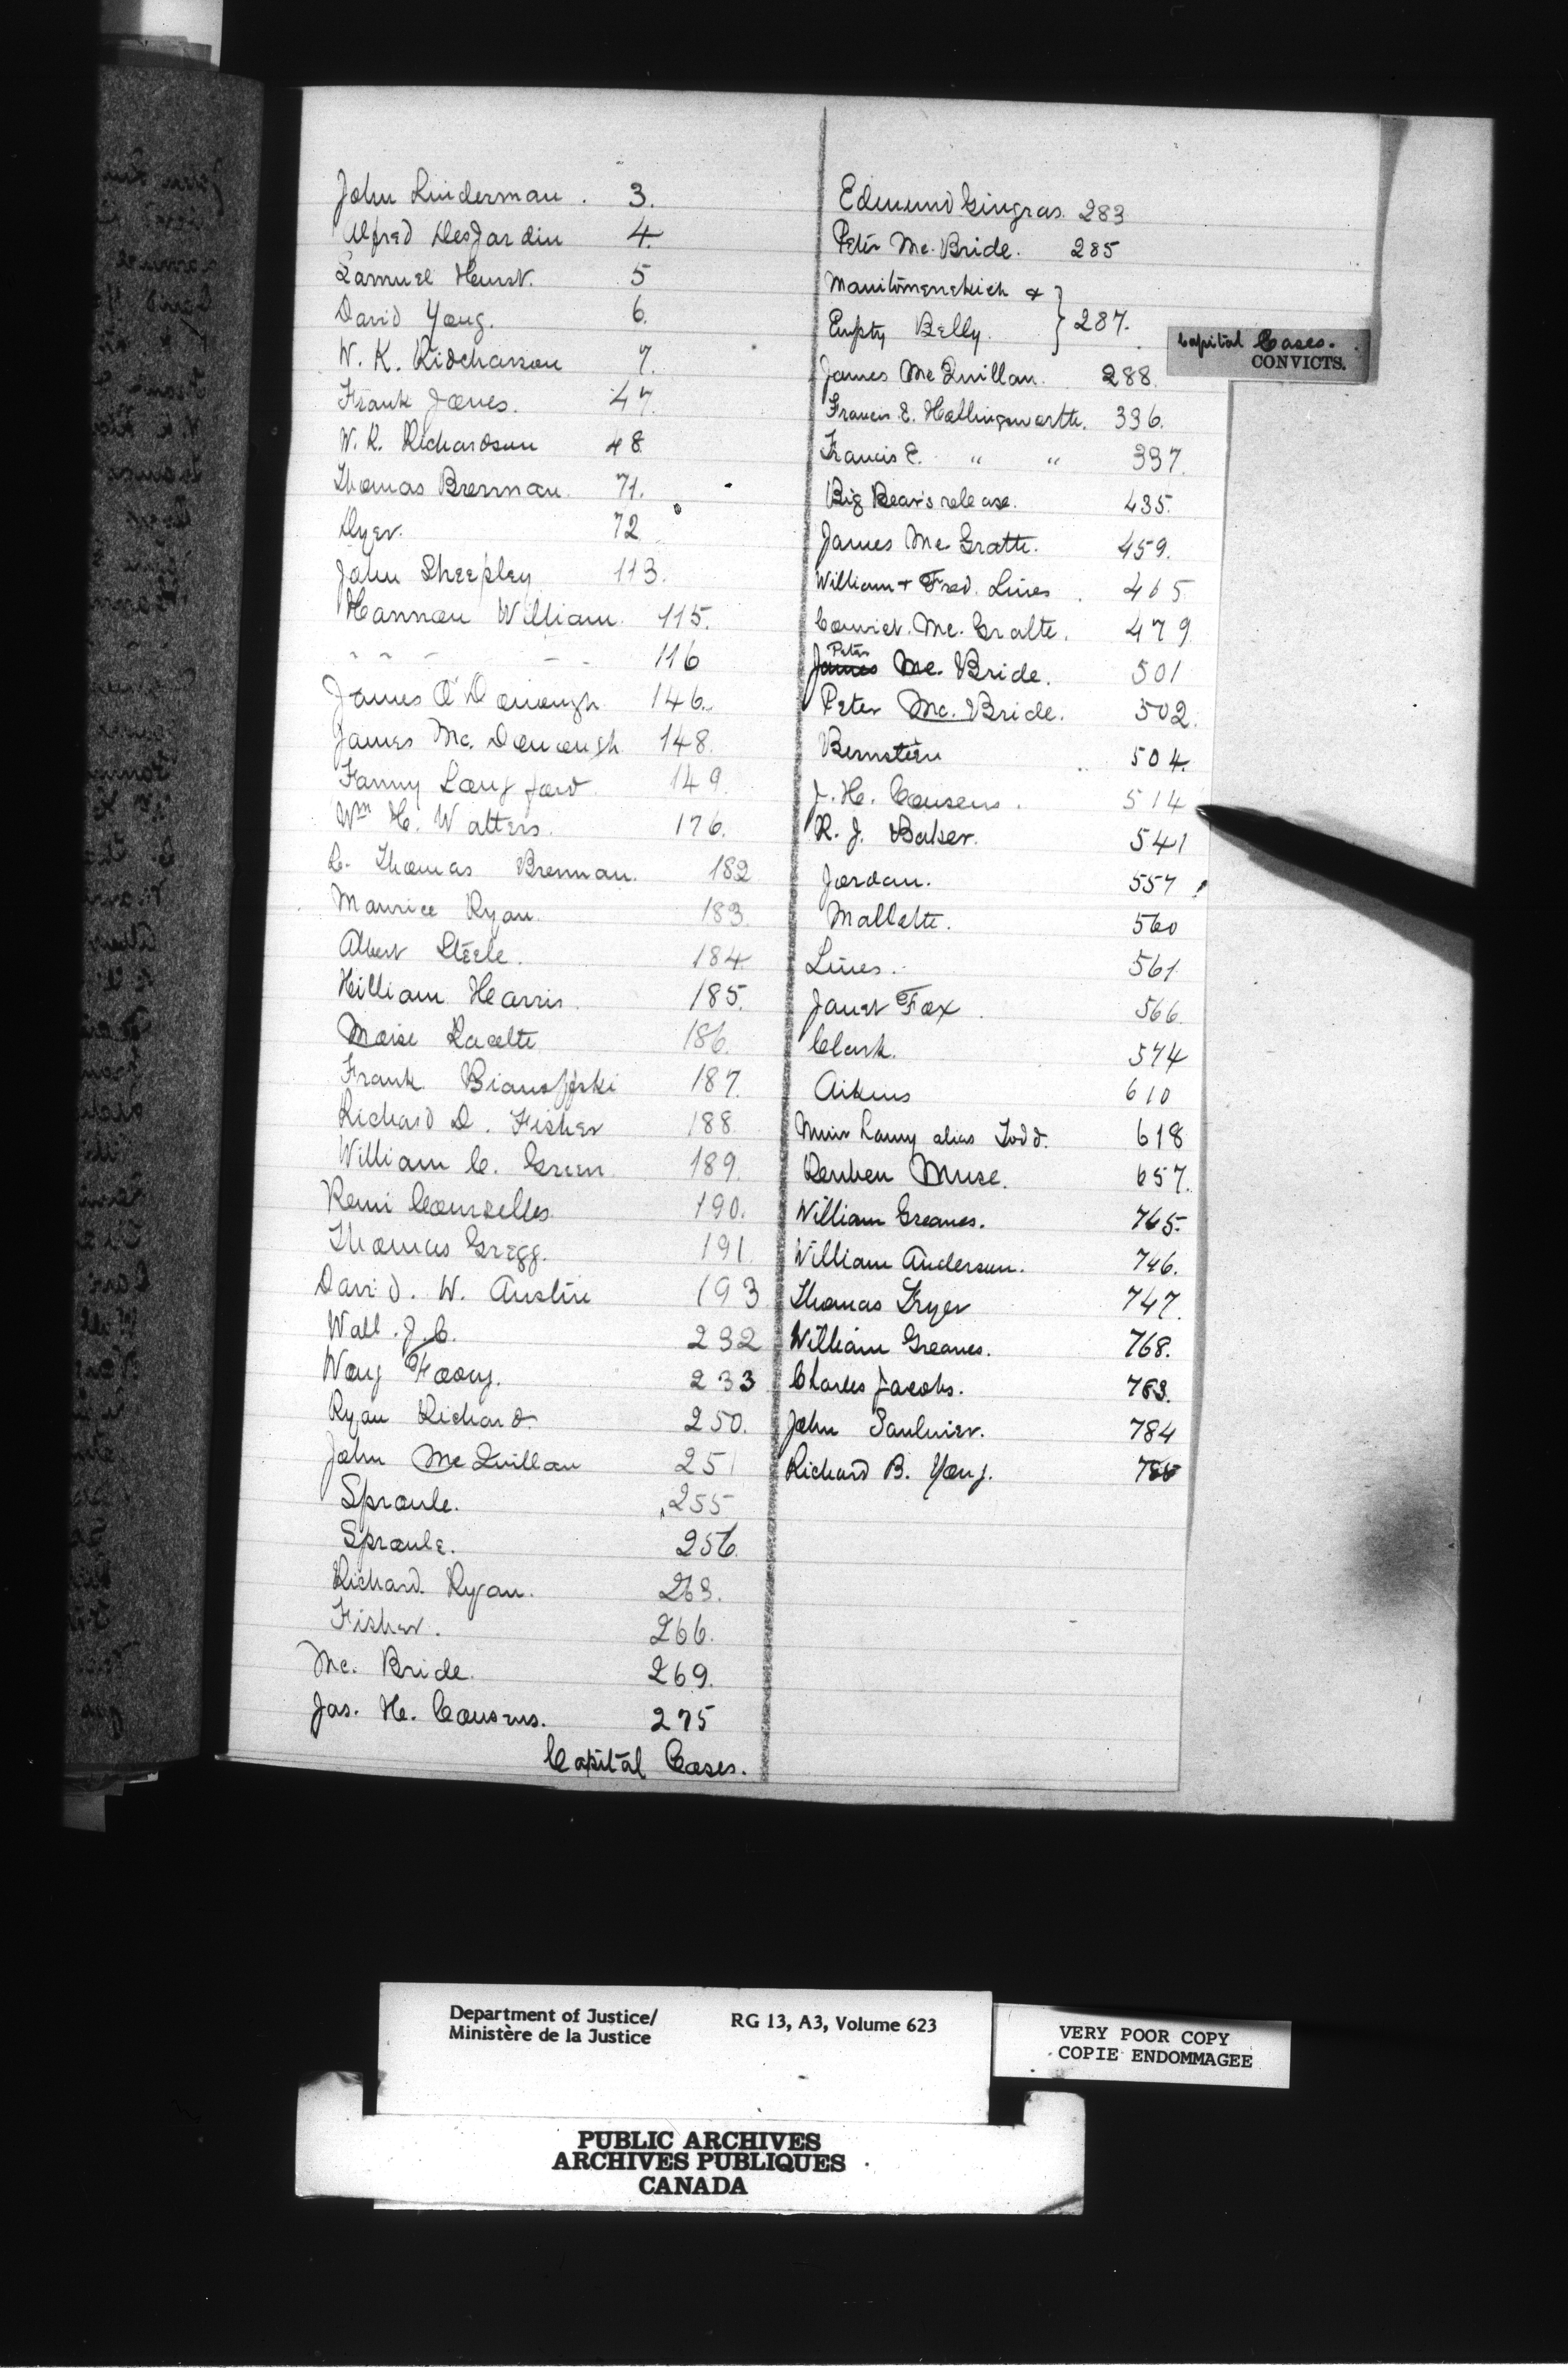 John Linderman. 3.
Alfred DesJardin 4.
Samuel Hurst. 5
David Young. 6.
W. K. Ridcharson 7.
Frank Jones. 47.
W. R. Richardson 48
Thomas Brennan. 71.
Dyer. 72
John Sheepley 113.
Hannah William. 115.
" " " " " 116
James O'Donough 146.
James Mc. Donough 148.
Fanny Langford 149.
Wm H. Walters. 176.
C. Thomas Brennan. 182
Maurice Ryan. 183.
Albert Steele. 184.
William Harris. 185.
Moise Racette 186.
Frank 187.
Richard D. Fisher 188.
William C. Green 189.
Remi Courselles 190.
Thomas Gregg. 191.
David. W. Austin 193
Wall. J. C. 232
Wong Foong. 233
Ryan Richard 250.
John McQuillan 251
Sproule. 255
Sproule. 256.
Richard Ryan. 263.
Fisher. 266.
Mc. Bride. 269.
Jas. H. Cousens. 275
Capital Cases.
Edmund Gingras. 283
Peter Mc. Bride. 285
Manitomenekich &
Empty Belly. } 287.
James McQuillan. 288.
Francis E. Hollingsworth. 336.
Francis E. " " 337.
Big Bear's release. 435.
James McGratte. 459.
William + Fred. Lines. 465
Convict. Mc. Gratte. 479
Peter
James Mc. Bride. 501
Peter Mc. Bride. 502.
Bernstein 504.
J. H. Cousens. 514
R. J. Baker. 541
Jordan. 557
Mallette. 560
Lines. 561
Janet Fox. 566.
Clark. 574
Aikins 610
Muir Lamy alias Todd. 618
Reuben Muse. 657.
William Greaves. 765.
William Anderson. 746.
Thomas Fryer 747.
William Greaves. 768.
Charles Jacobs. 783.
John Saulnier. 784
Richard B. Young.
Capital Cases.
CONVICTS.
Department of Justice/ RG 13, A3, Volume 623
Ministère de la Justice
VERY POOR COPY
COPIE ENDOMMAGEE
PUBLIC ARCHIVES
ARCHIVES PUBLIQUES
CANADA